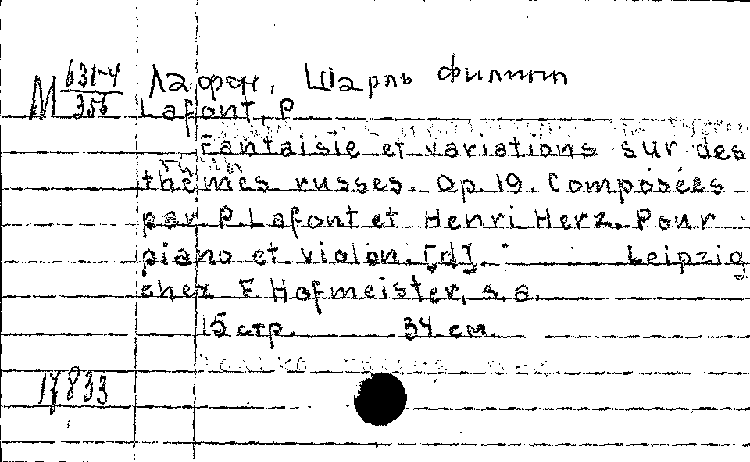 М 631-4/356 Лафон, Шарль Филипп
Lafont, P
Fantaisie et variations sur des
thèmes russes. Op. 19. Composées
par P. Lafont et Henri Herz. Pour
piano et violon. [d].      Leipzig
chez F. Hofmeister, s. a.
15 стр.      34 см.
17833